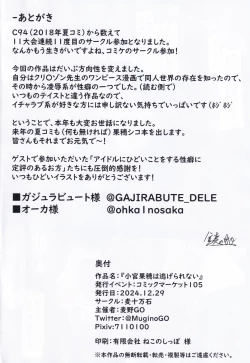 -あとがき
C94(2018年夏コミ)から数えて
11大会連続11度目のサークル参加となりました。
なんかもう生きがいですよね、コミケのサークル参加！
今回の作品はだいぶ方向性を変えました。
自分はクリ○ゾン先生のワンピース漫画で同人世界の存在を知ったので、
その時から凌辱系が性癖の一つでした。(読む側で)
いつものテイストと違う作品なので、
イチャラブ系が好きな方には申し訳ない気持ちでいっぱいです
ということで、本年も大変お世話になりました。
来年の夏コミも(何も無ければ)果穂シコ本を出します。
皆さんもそれまでお元気で～！
ゲストで参加いただいた「アイドルにひどいことをする性癖に
定評のあるお方」たちにも圧倒的感謝を！
いつもひどいイラストをありがとうございます！
■ガジュラビュート様 @GAJIRABUTE_DELE
■オーカ様 @ohka1nosaka
奥付
作品名：『小宮果穂は逃げられない』
発行イベント：コミックマーケット105
発行日：2024.12.29
サークル：麦十方石
主催者：麦野GO
Twitter：@MuginoGO
Pixiv：7110100
印刷：有限会社 ねこのしっぽ 様
※本作品の無断転載・転売・複写・複製を禁じます。